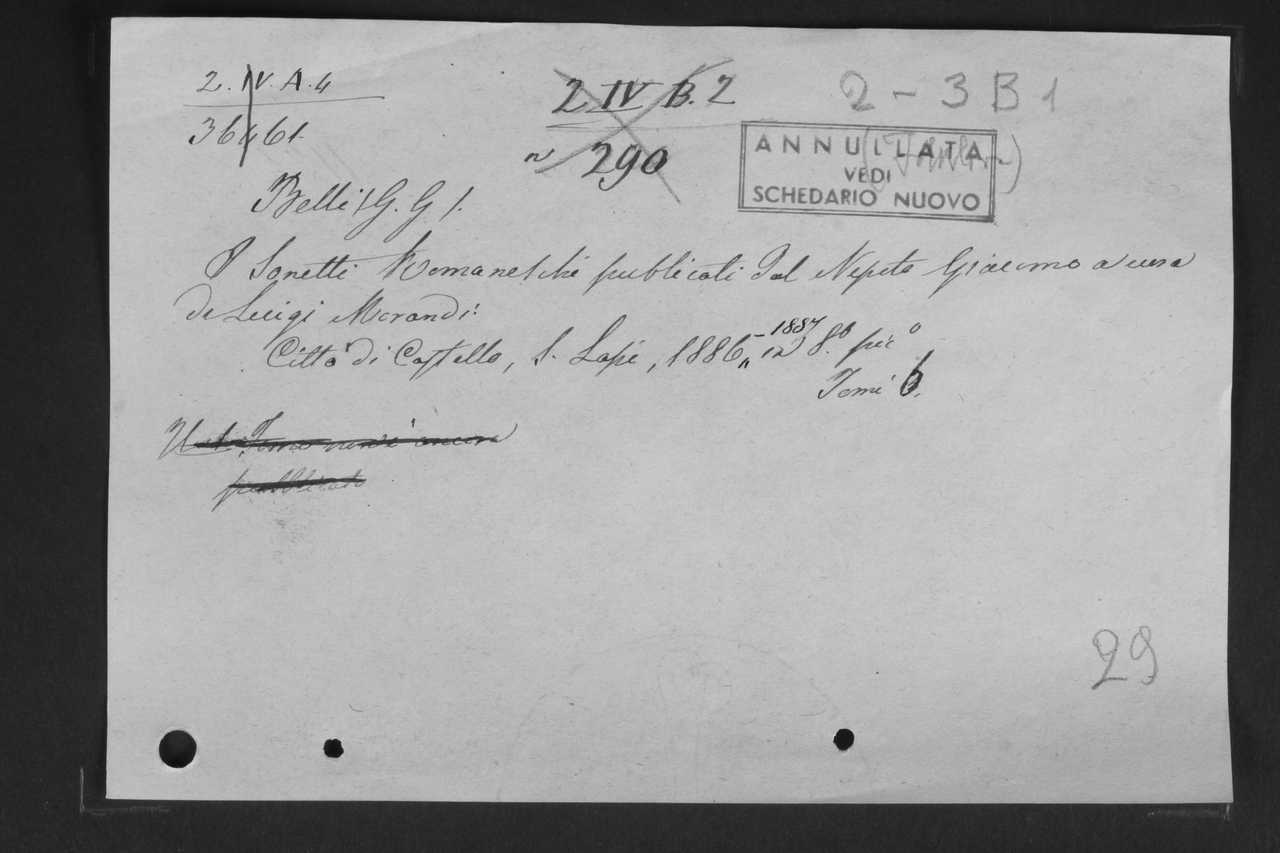 2. IV. A. 4
36461
2 IV B. 2
n 290
2 - 3 B 1
ANNULLATA
VEDI
SCHEDARIO NUOVO
Belli (G. G.).
I Sonetti Romaneschi pubblicati dal Nipote Giacomo a cura
di Luigi Morandi.
Città di Castello, S. Lapi, 1886-1887 in 8.º pic.º
Tomi 6.
Il 1.º Tomo non è ancora
pubblicato
29